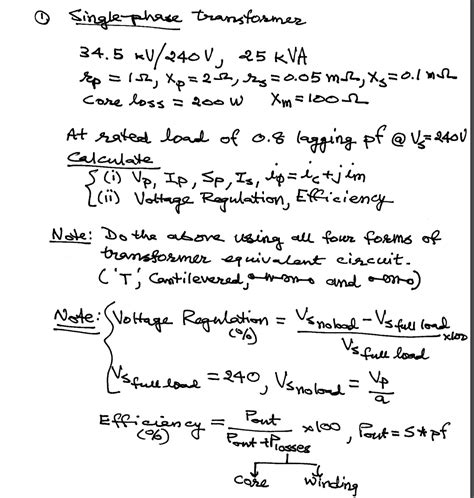 ① Single-phase transformer
34.5 kV/240V, 25 kVA
rp = 1Ω, Xp = 2Ω, rs = 0.05 mΩ, Xs = 0.1 mΩ
Core loss = 200 W Xm = 100 Ω
At rated load of 0.8 lagging pf @ Vs = 240V
Calculate
(i) Vp, Ip, Sp, Is, iφ = ic + j im
(ii) Voltage Regulation, Efficiency
Note: Do the above using all four forms of
transformer equivalent circuit.
('T', Cantilevered, and )
Note: Voltage Regulation (%) = Vs noload - Vs full load / Vs full load x100
Vs full load = 240, Vs noload = Vp/a
Efficiency (%) = Pout / Pout + Plosses x100, Pout = S * pf
Core winding